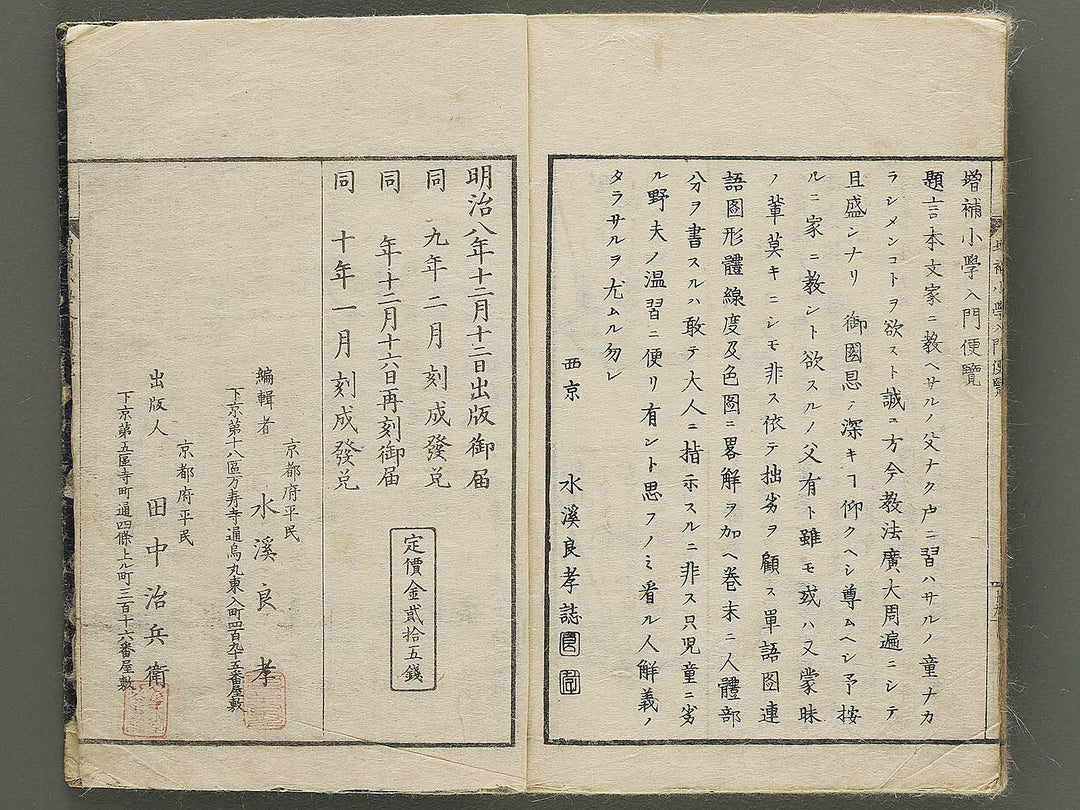 増補小學入門便覽
題言本文家ニ教ヘサルノ父ナク戸ニ習ハサルノ童ナカ
ラシメンコトヲ欲スト誠ニ方今教法廣大周遍ニシテ
且盛ンナリ御國恩ノ深キヿ仰クヘシ尊ムヘシ予按
ルニ家ニ教ント欲スルノ父有ト雖モ或ハ又蒙昧
ノ輩莫キニシモ非ス依テ拙劣ヲ顧ス單語圖連
語圖形體線度及色圖ニ畧解ヲ加ヘ巻末ニ人體部
分ヲ書スルハ敢テ大人ニ指示スルニ非ス只児童ニ劣
ル野夫ノ温習ニ便リ有ント思フノミ看ル人解義ノ
タラサルヲ尤ムル勿レ
西京 水溪良孝誌
明治八年十二月十二日出版御届
同 九年二月刻成發兌
同 年十二月十六日再刻御届
同 十年一月刻成發兌
定價金貳拾五錢
京都府平民
編輯者 水溪良孝
下京第十八區万寿寺通烏丸東入町四百九十五番屋敷
京都府平民
出版人 田中治兵衛
下京第五區寺町通四條上ル町三百十六番屋敷